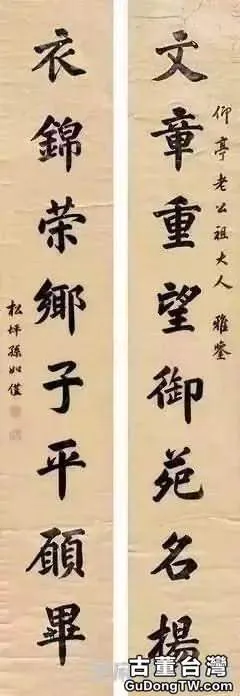 仰亭老公祖大人 雅鉴
文章重望御苑名揚
衣錦荣鄉子平願畢
松坪孫如僅
古董台灣
GuDongTW.com